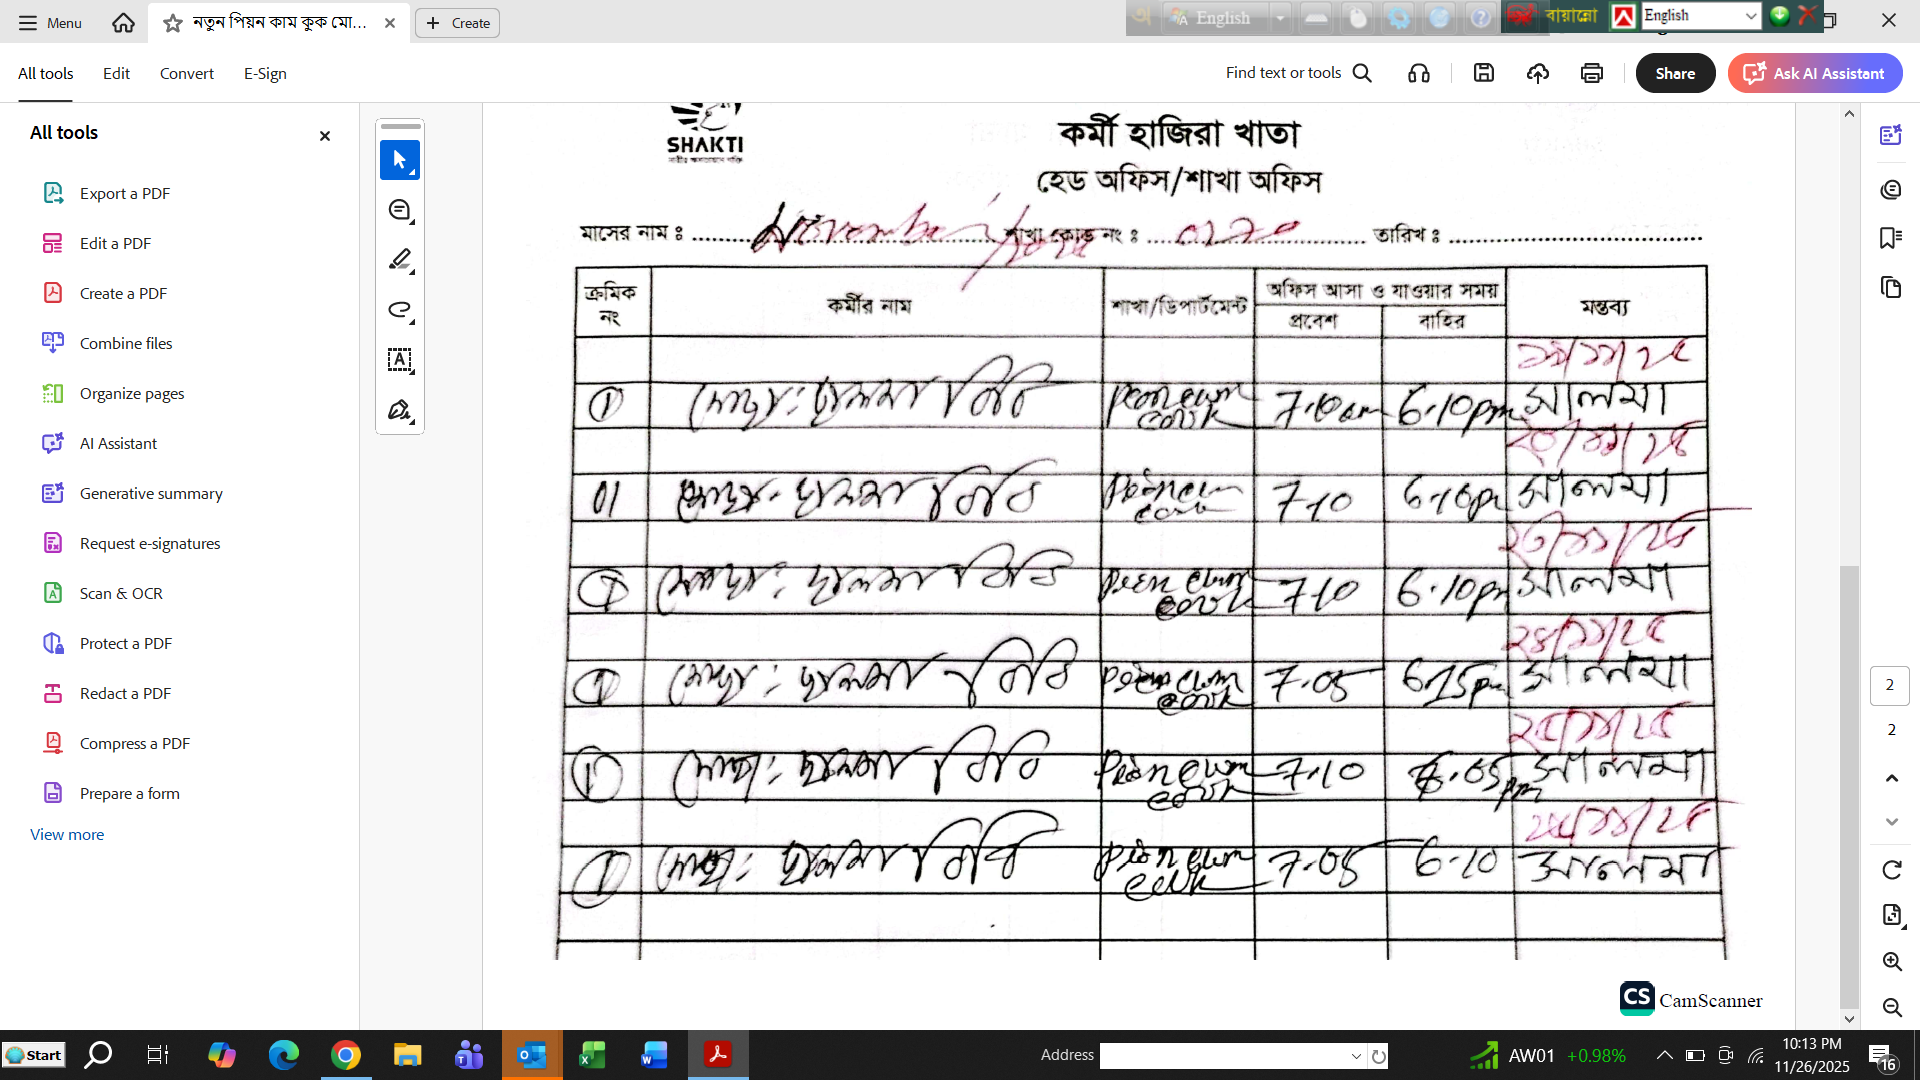 Menu
নতুন পিয়ন কাম কুক মো...
Create
English
বায়ান্নো
English
All tools
Edit
Convert
E-Sign
Find text or tools
Share
Ask AI Assistant
All tools
Export a PDF
Edit a PDF
Create a PDF
Combine files
Organize pages
AI Assistant
Generative summary
Request e-signatures
Scan & OCR
Protect a PDF
Redact a PDF
Compress a PDF
Prepare a form
View more
SHAKTI
কর্মী হাজিরা খাতা
হেড অফিস/শাখা অফিস
মাসের নাম ঃ November শাখা কোড নং ঃ তারিখ ঃ
ক্রমিক নং কর্মীর নাম শাখা/ডিপার্টমেন্ট অফিস আসা ও যাওয়ার সময় মন্তব্য
প্রবেশ বাহির
১৯/১১/২৫
① মোছাঃ ছালমা বিবি peon cum cook 7.10am 6.10pm সালমা
২০/১১/২৫
01 মোছাঃ ছালমা বিবি peon cum cook 7.10 6.10pm সালমা
২৩/১১/২৫
① মোছাঃ ছালমা বিবি peon cum cook 7.10 6.10pm সালমা
২৪/১১/২৫
① মোছাঃ ছালমা বিবি peon cum cook 7.05 6.15pm সালমা
২৫/১১/২৫
① মোছাঃ ছালমা বিবি peon cum cook 7.10 6.05pm সালমা
২৬/১১/২৫
① মোছাঃ ছালমা বিবি peon cum cook 7.05 6.10 সালমা
CS CamScanner
2
2
Start
Address
AW01 +0.98%
10:13 PM
11/26/2025
16